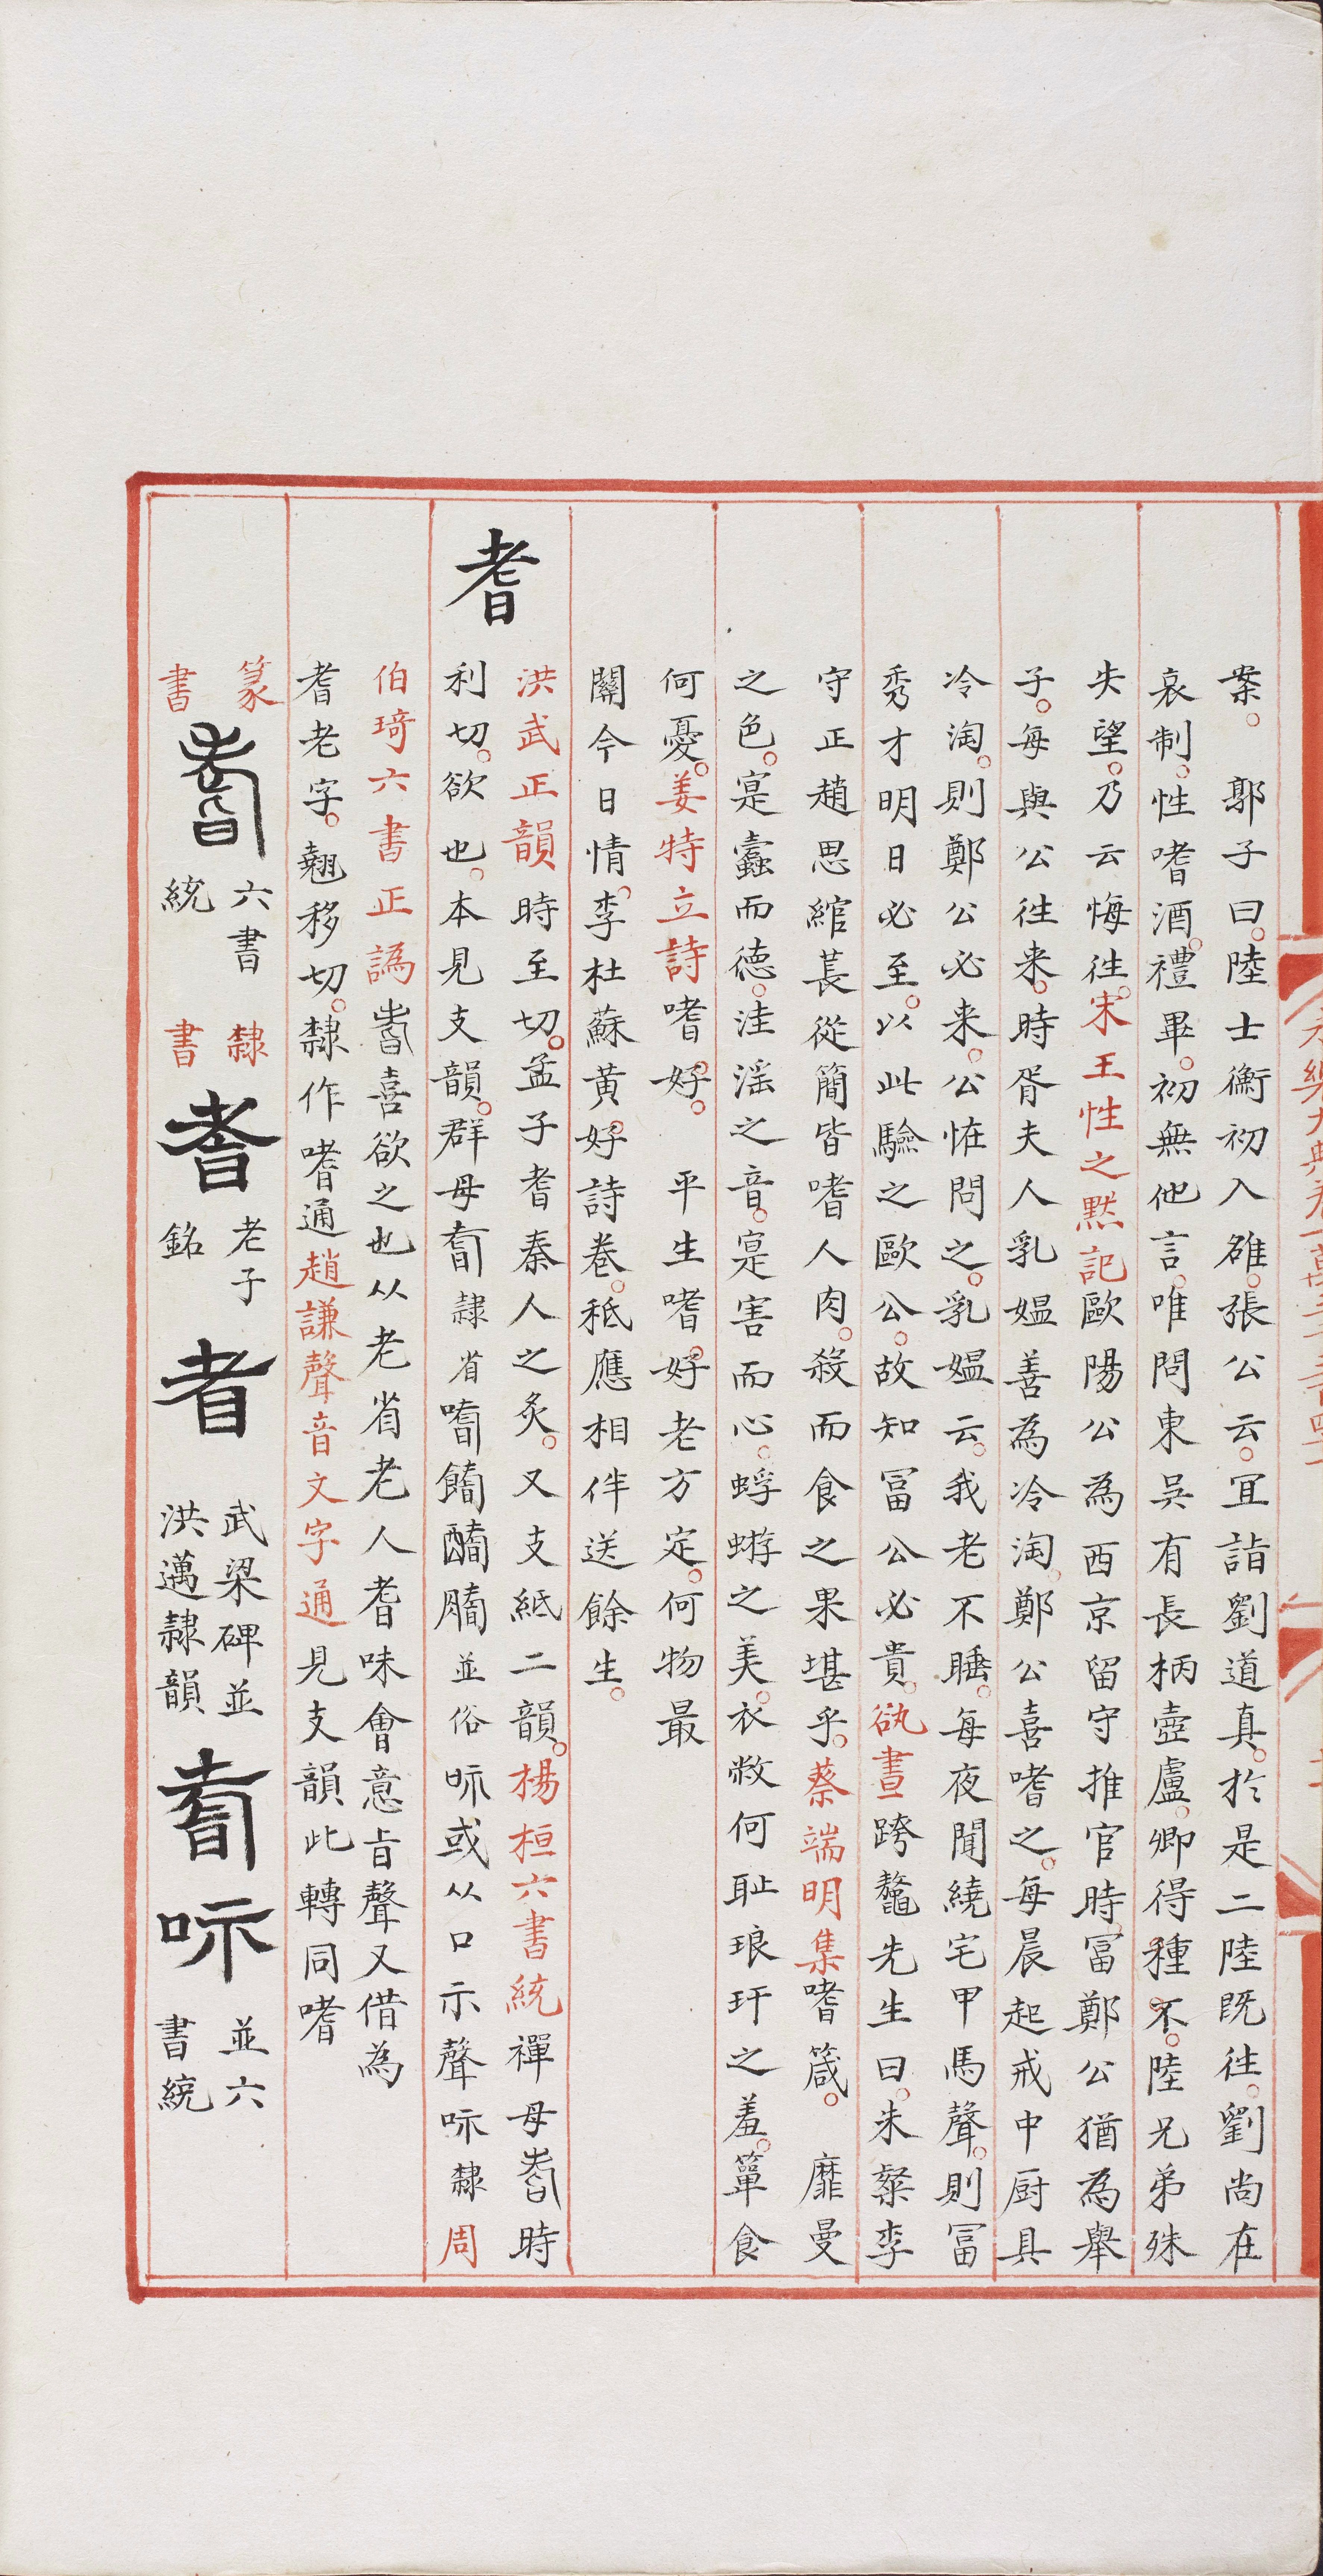 案。　郭子曰。陸士衡初入雒。張公云。宜詣劉道真。於是二陸既徃。劉尚在
哀制。性嗜酒。禮畢。初無他言。唯問東吳有長柄壺盧。卿得種不。陸兄弟殊
失望。乃云悔徃。宋王性之黙記歐陽公為西京留守推官時。冨鄭公猶為舉
子。每與公徃来。時胥夫人乳媼善為冷淘。鄭公喜嗜之。每晨起戒中厨具
冷淘。則鄭公必来。公恠問之。乳媼云。我老不睡。每夜聞繞宅甲馬聲。則冨
秀才明日必至。以此驗之歐公。故知冨公必貴。欱晝跨鼇先生曰。朱粲李
守正趙思綰萇從簡皆嗜人肉。殺而食之果堪乎。蔡端明集嗜箴。　靡曼
之色。寔蠧而德。洼滛之音。寔害而心。蜉蝣之美。衣敝何耻琅玕之羞。簞食
何憂。姜特立詩嗜好。　平生嗜好老方定。何物最
關今日情。李杜蘇黄好詩卷。秪應相伴送餘生。
耆
洪武正韻時至切。孟子耆秦人之炙。又支紙二韻。楊桓六書統禪母耆時
利切。欲也。本見支韻。群母耆隷省嗜饍醋膳並俗呩或从口示聲呩隷周
伯琦六書正譌耆喜欲之也从老省老人耆味會意旨聲又借為
耆老字。翹移切。隷作嗜通趙謙聲音文字通見支韻此轉同嗜
篆書 耆 六書統 隸書 耆 老子銘 耆 武梁碑並洪邁隷韻 耆 呩 並六書統
永樂大典卷一萬